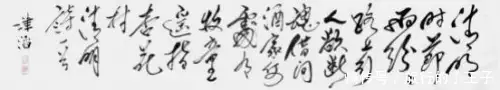 清明
时节
雨纷纷
路上行
人欲断
魂借问
酒家何
处有
牧童
遥指
杏花
村
清明
诗一首